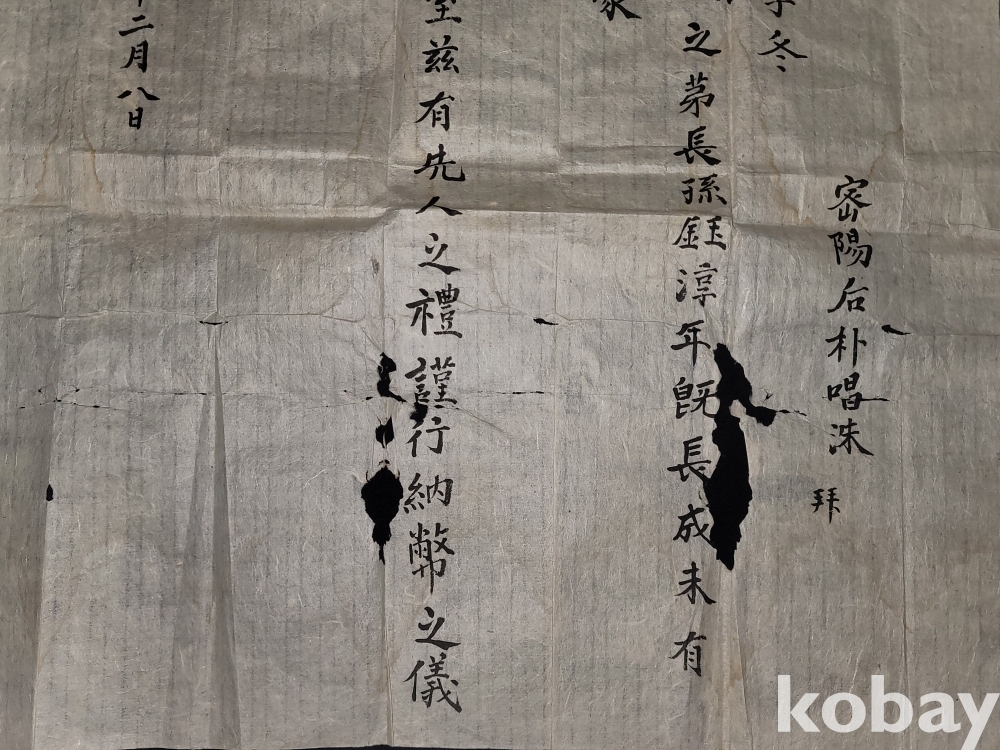 密陽后朴唱洙 拜
季冬
之苐長孫鈺淳年旣長成未有
家
室兹有先人之禮謹行納幣之儀
二月八日
kobay